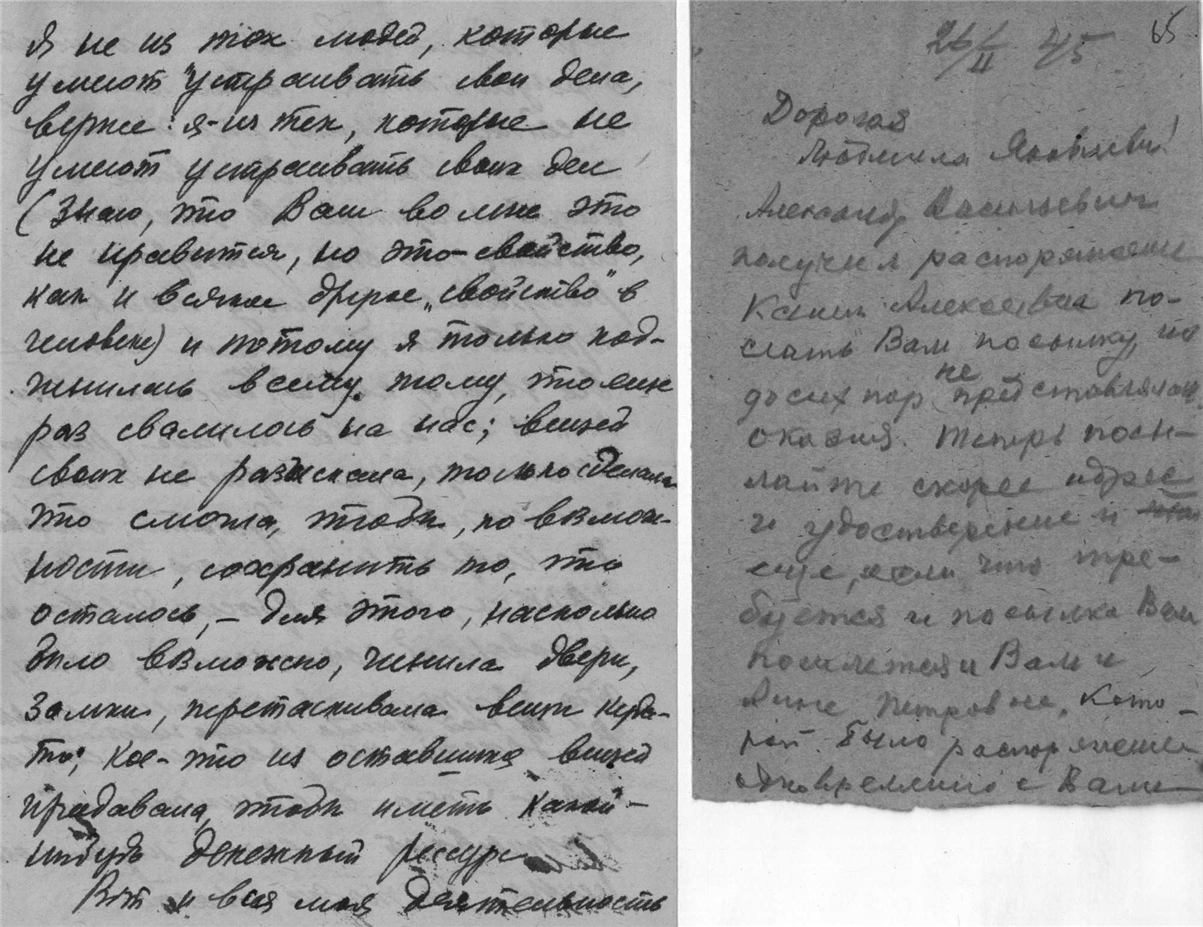 Я не из тех людей, которые
умеют "устраивать свои дела,
вернее: я-из тех, которые не
умеют устраивать своих дел
(Знаю, что Вам во мне это
не нравится, но это-свойство,
как и всякое другое „свойство" в
человеке) и потому я только под-
чинилась всему тому, что еще
раз свалилось на нас; вещей
своих не разыскала, только сделала
что смогла, чтобы, по возмож-
ности, сохранить то, что
осталось, – для этого, насколько
было возможно, чинила двери,
замки, перетаскивала вещи
то; кое-что из оставшихся вещей
продавала, чтобы иметь какой-
нибудь денежный ресурс
Вот и вся моя деятельность
65
26/II 45
Дорогая
Людмила Яковлевна!
Александр Васильевич
получил распоряжение
Алексеевна по-
слать Вам посылку, но
до сих пор не представлялась
оказия. Теперь посы-
лайте скорее адрес
и удостверение и
еще, если что тре-
буется и посылка Вам
посылается и Вам и
Анне Петровне, кото-
рой было распоряжение
одновременно с Вами